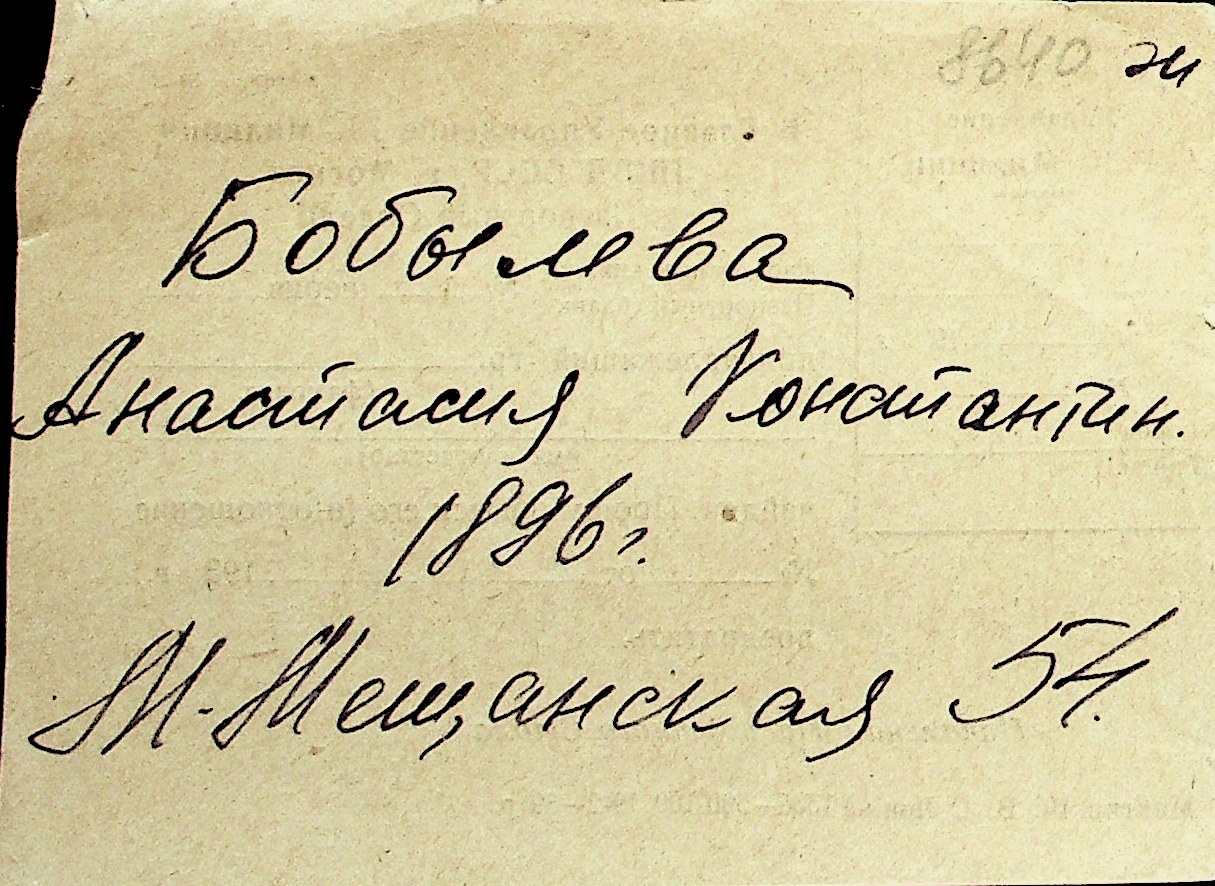 8640 ж
Бобылева
Анастасия Константин.
1896г.
М-Мещанская 54.